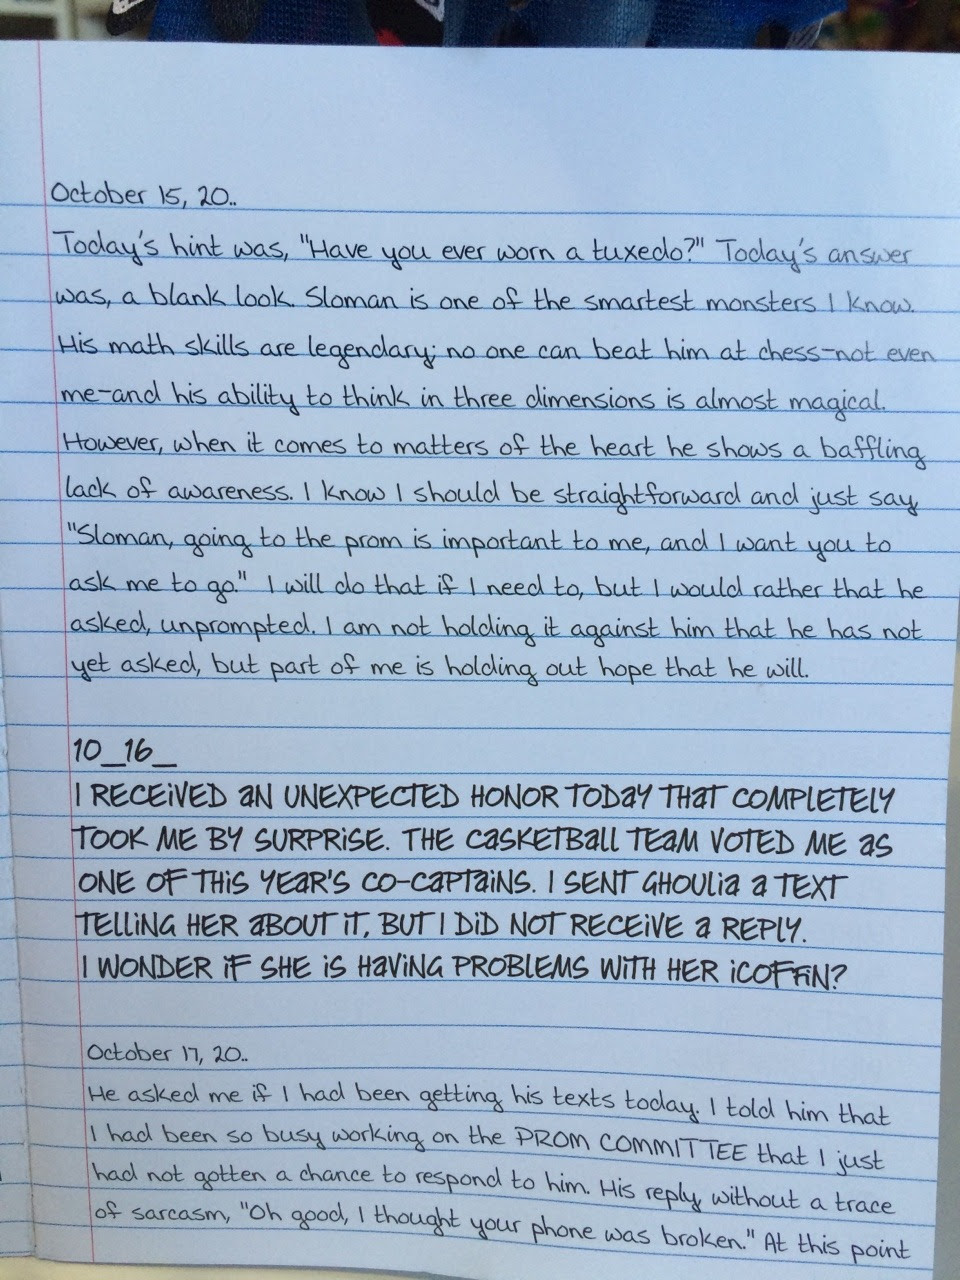 October 15, 20..
Today's hint was, "Have you ever worn a tuxedo?" Today's answer
was, a blank look. Sloman is one of the smartest monsters I know.
His math skills are legendary; no one can beat him at chess-not even
me-and his ability to think in three dimensions is almost magical.
However, when it comes to matters of the heart he shows a baffling
lack of awareness. I know I should be straightforward and just say
"Sloman, going to the prom is important to me, and I want you to
ask me to go." I will do that if I need to, but I would rather that he
asked, unprompted. I am not holding it against him that he has not
yet asked, but part of me is holding out hope that he will.
10_16_
I RECEiVED aN UNEXPECTED HONOR TODaY THaT COMPLETELY
TOOK ME BY SURPRiSE. THE CaSKETBall TEaM VOTED ME aS
ONE OF THiS YEaR'S CO-CaPTaiNS. I SENT GHOULia a TEXT
TELLiNG HER aBOUT iT, BUT I DiD NOT RECEiVE a REPLY.
I WONDER iF SHE iS HaViNG PROBLEMS WiTH HER iCOFFiN?
October 17, 20..
He asked me if I had been getting his texts today. I told him that
I had been so busy working on the PROM COMMITTEE that I just
had not gotten a chance to respond to him. His reply without a trace
of sarcasm, "Oh good, I thought your phone was broken." At this point